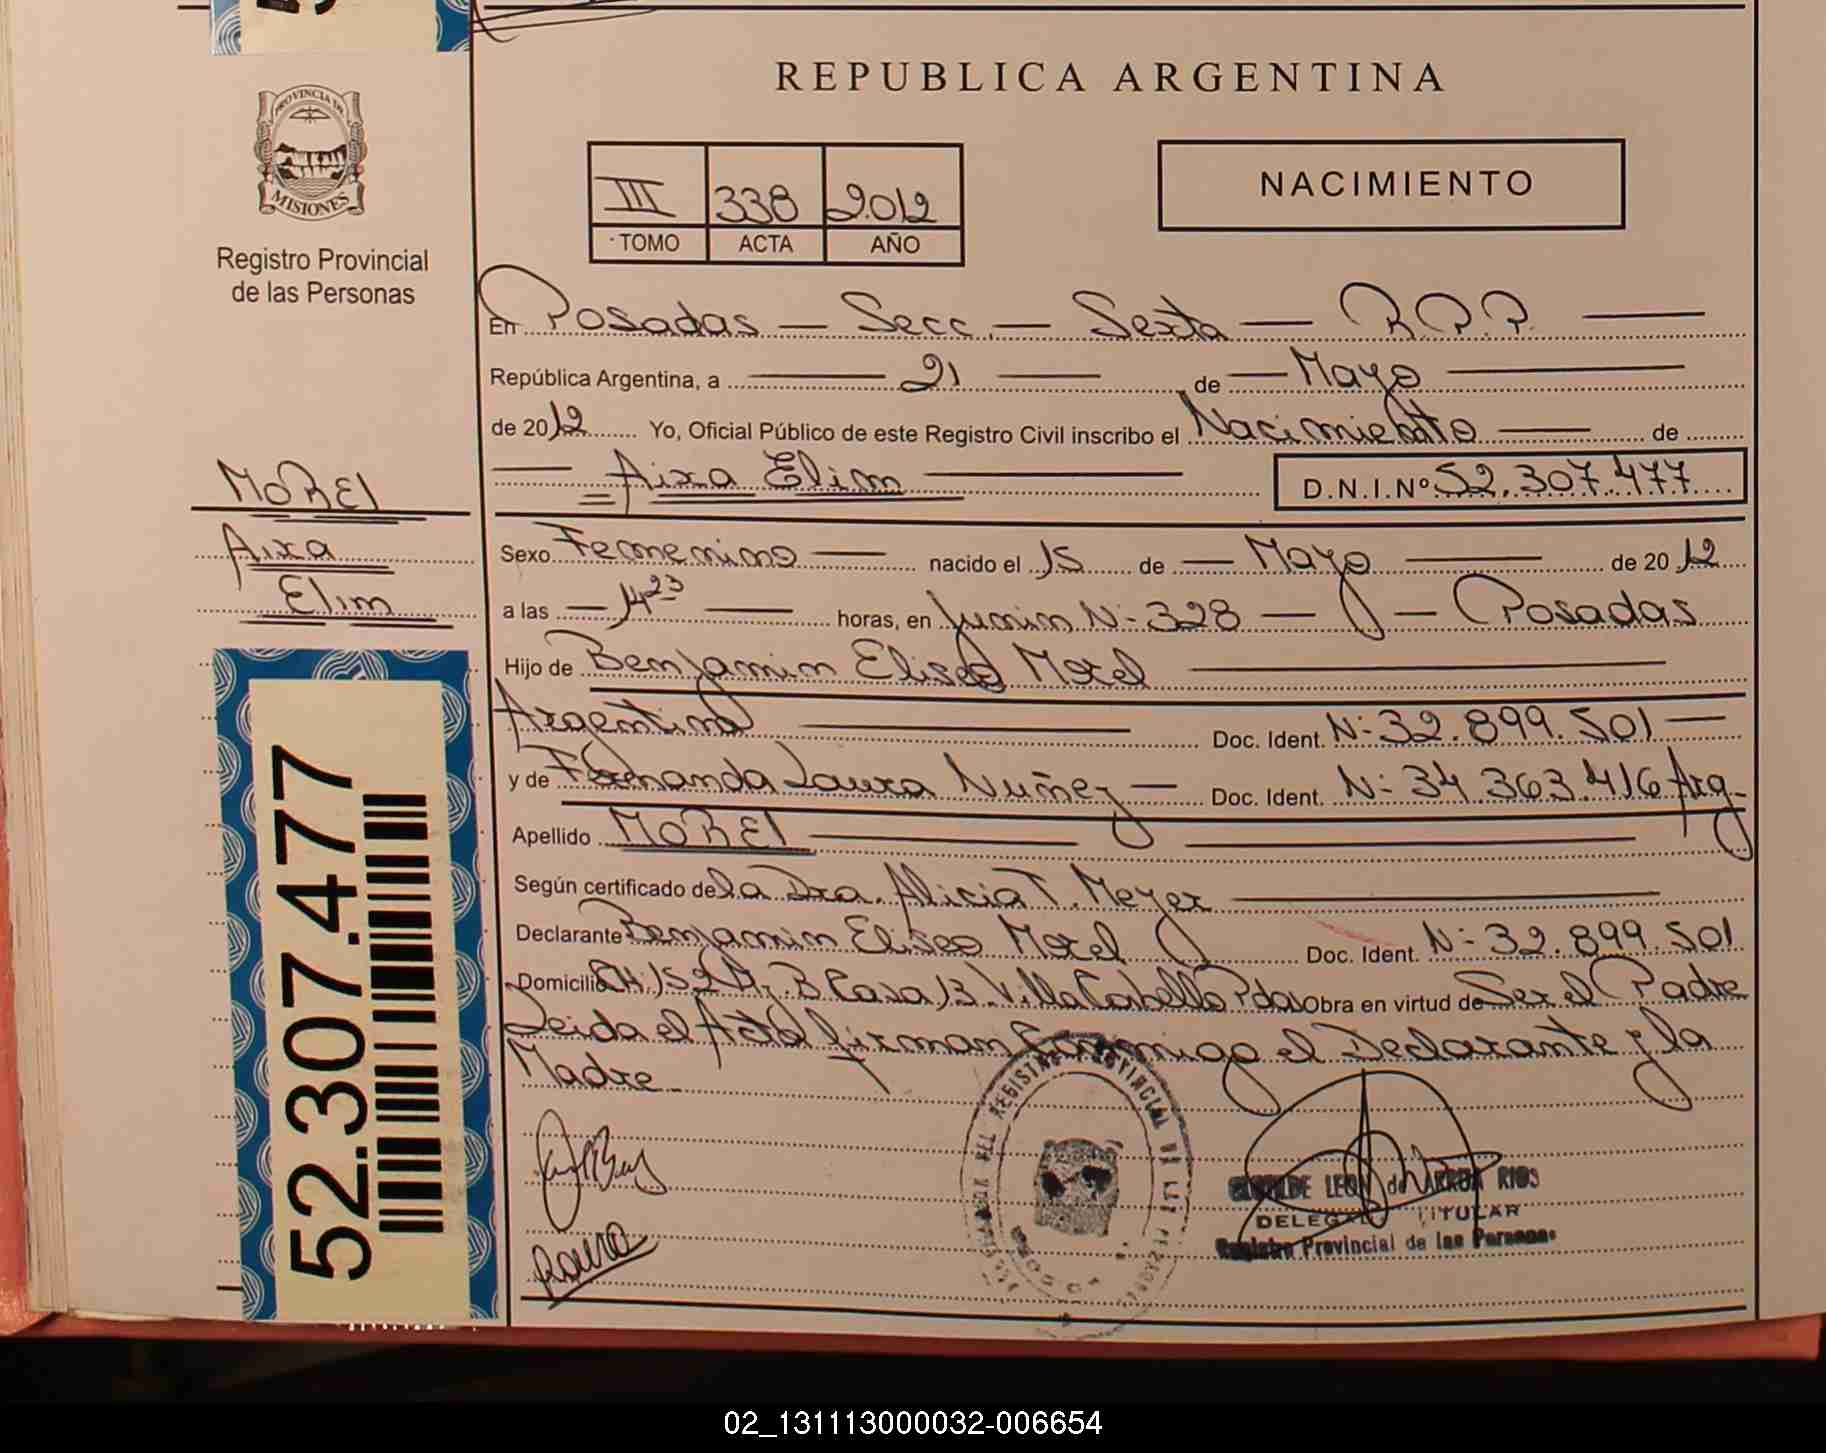 REPUBLICA ARGENTINA
PROVINCIA DE
MISIONES
Registro Provincial
de las Personas
III 338 2012
TOMO ACTA AÑO
NACIMIENTO
En Posadas — Secc. — Sexta — R.P.P.
República Argentina, a 21 de Mayo
de 2012 Yo, Oficial Público de este Registro Civil inscribo el Nacimiento de
Aixa Elim D.N.I.Nº 52.307.477
MOREl
Aixa
Elim
Sexo Femenino nacido el 15 de Mayo de 2012
a las 14 23 horas, en Junin N: 328 — Posadas
Hijo de Benjamin Eliseo Morel
Argentino Doc. Ident. N: 32.899.501
y de Fernanda Laura Nuñez Doc. Ident. N: 34.363.416 Arg.
Apellido MOREl
Según certificado de la Dra. Alicia T. Meyer
Declarante Benjamin Eliseo Morel Doc. Ident. N: 32.899.501
Domicilio CH. 152 B Casa 13 Villa Cabello Pdas Obra en virtud de Ser el Padre
Leida el Acta firman Conmigo el Declarante y la
Madre
Laura
REGISTRO PROVINCIAL DE LAS PERSONAS
LEON de ARRUA RIOS
DELEGADO TITULAR
Registro Provincial de las Personas
52.307.477
02_131113000032-006654